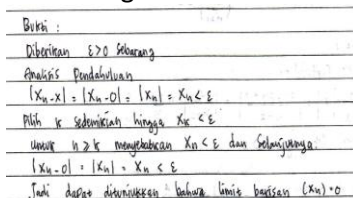 Bukti :
Diberikan ε>0 sebarang
Analisis Pendahuluan
|Xn-x| = |Xn-0| = |Xn| = Xn < ε
Pilih K sedemikian hingga Xk < ε
untuk n ≥ k menyebabkan Xn < ε dan selanjutnya
|Xn-0| = |Xn| = Xn < ε
Jadi dapat ditunjukkan bahwa limit barisan (Xn) = 0